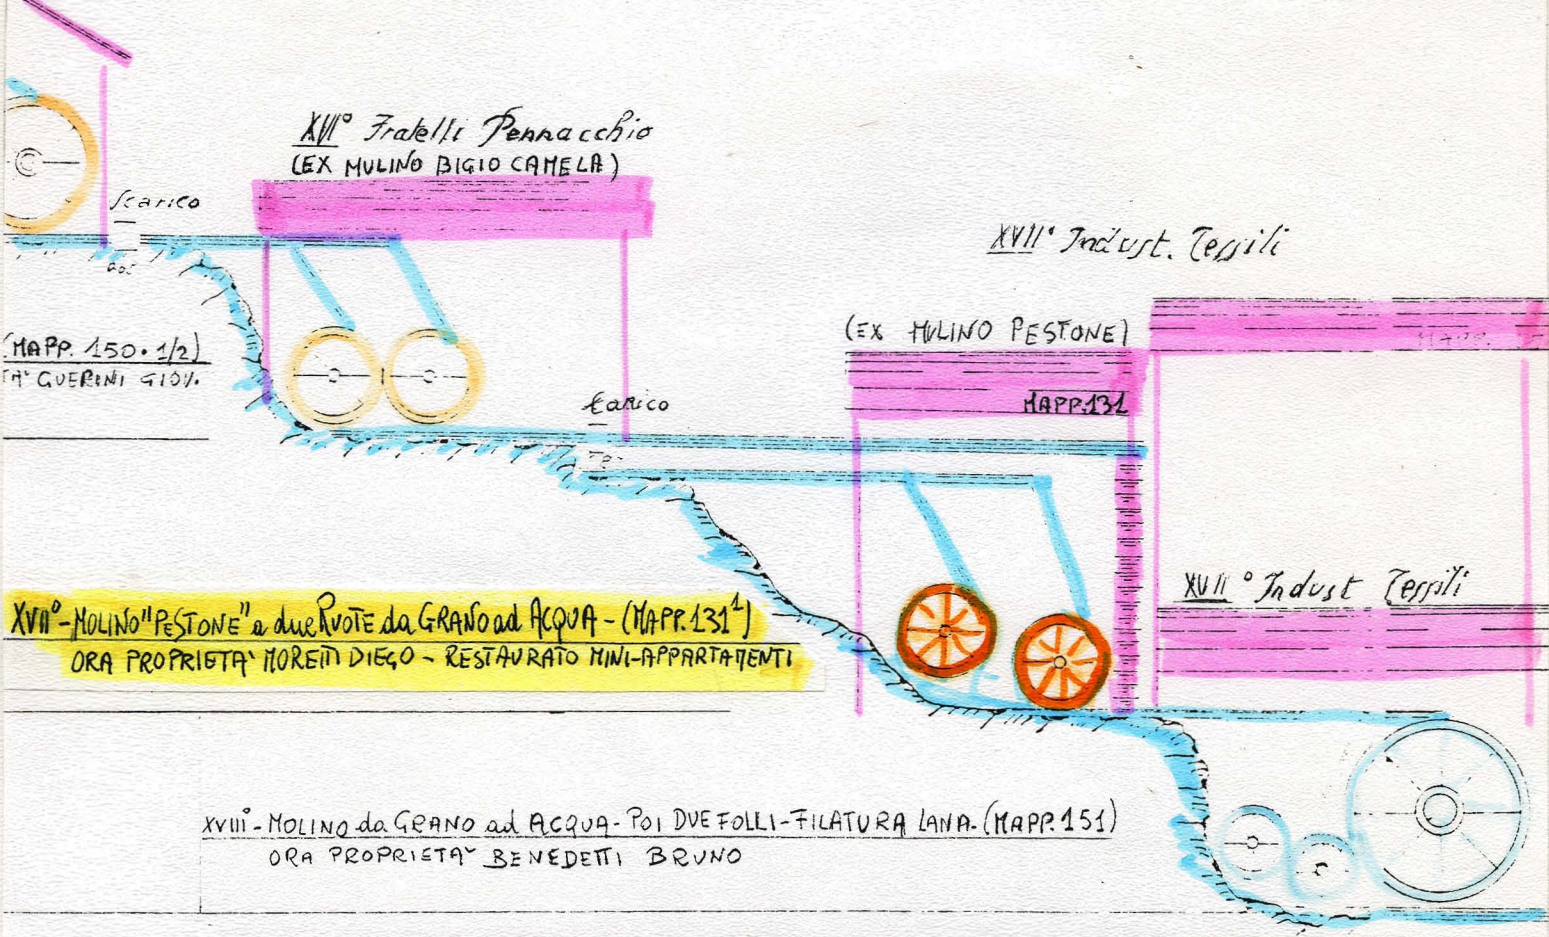 XVI° Fratelli Pennacchio
(EX MULINO BIGIO CAMELA)
Scarico
XVII° Indust. Tessili
(EX MULINO PESTONE)
MAPP.
(MAPP. 150.1/2)
TA' GUERINI GIOV.
MAPP.131
XVII° Indust Tessili
XVII°-MOLINO "PESTONE" a due RUOTE da GRANO ad ACQUA - (MAPP.131¹)
ORA PROPRIETA' MORETTI DIEGO - RESTAURATO MINI-APPARTAMENTI
XVIII°-MOLINO da GRANO ad ACQUA-POI DUE FOLLI-FILATURA LANA.(MAPP.151)
ORA PROPRIETA' BENEDETTI BRUNO